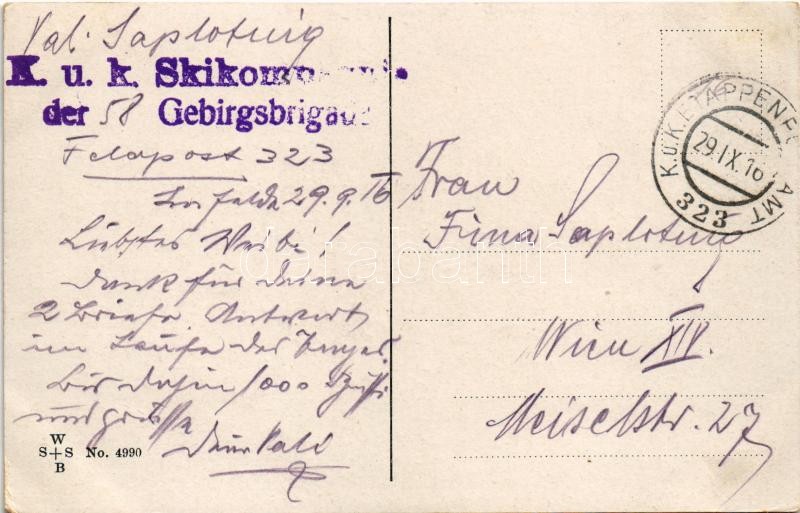 Val. Saplotnig
K. u. k. Skikompagnie
der 58 Gebirgsbrigade
Feldpost 323
Im Felde 29.9.16
Liebstes Weibi!
Dank für Deine
2 Briefe. Antwort
im Laufe des Tages.
Bis dahin 1000 Bussi
und Grüsse
Dein Vali
W
S+S
B
No. 4990
K.u.K. ETAPPENPOSTAMT
29.IX.16
323
Frau
Fina Saplotnig
Wien XIV.
Meiselstr. 27
databanth